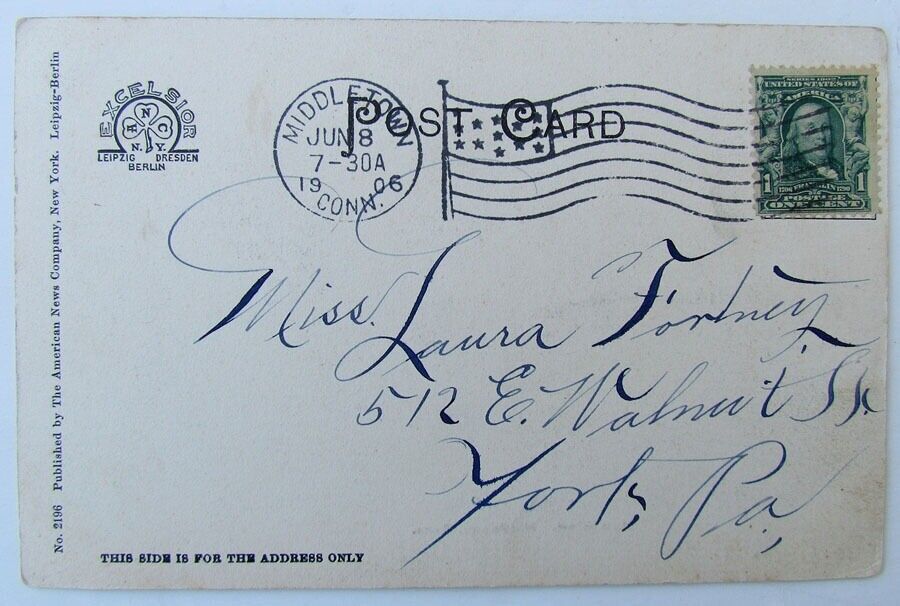 No. 2196 Published by The American News Company, New York. Leipzig-Berlin
EXCELSIOR
A N C
N.Y.
LEIPZIG DRESDEN
BERLIN
MIDDLETOWN
JUN 8
7-30A
19 06
CONN.
POST CARD
SERIES 1902
UNITED STATES OF
AMERICA
1 1706 FRANKLIN 1790 1
POSTAGE
ONE CENT
Miss. Laura Forney,
512 E. Walnut St.
York, Pa,
THIS SIDE IS FOR THE ADDRESS ONLY